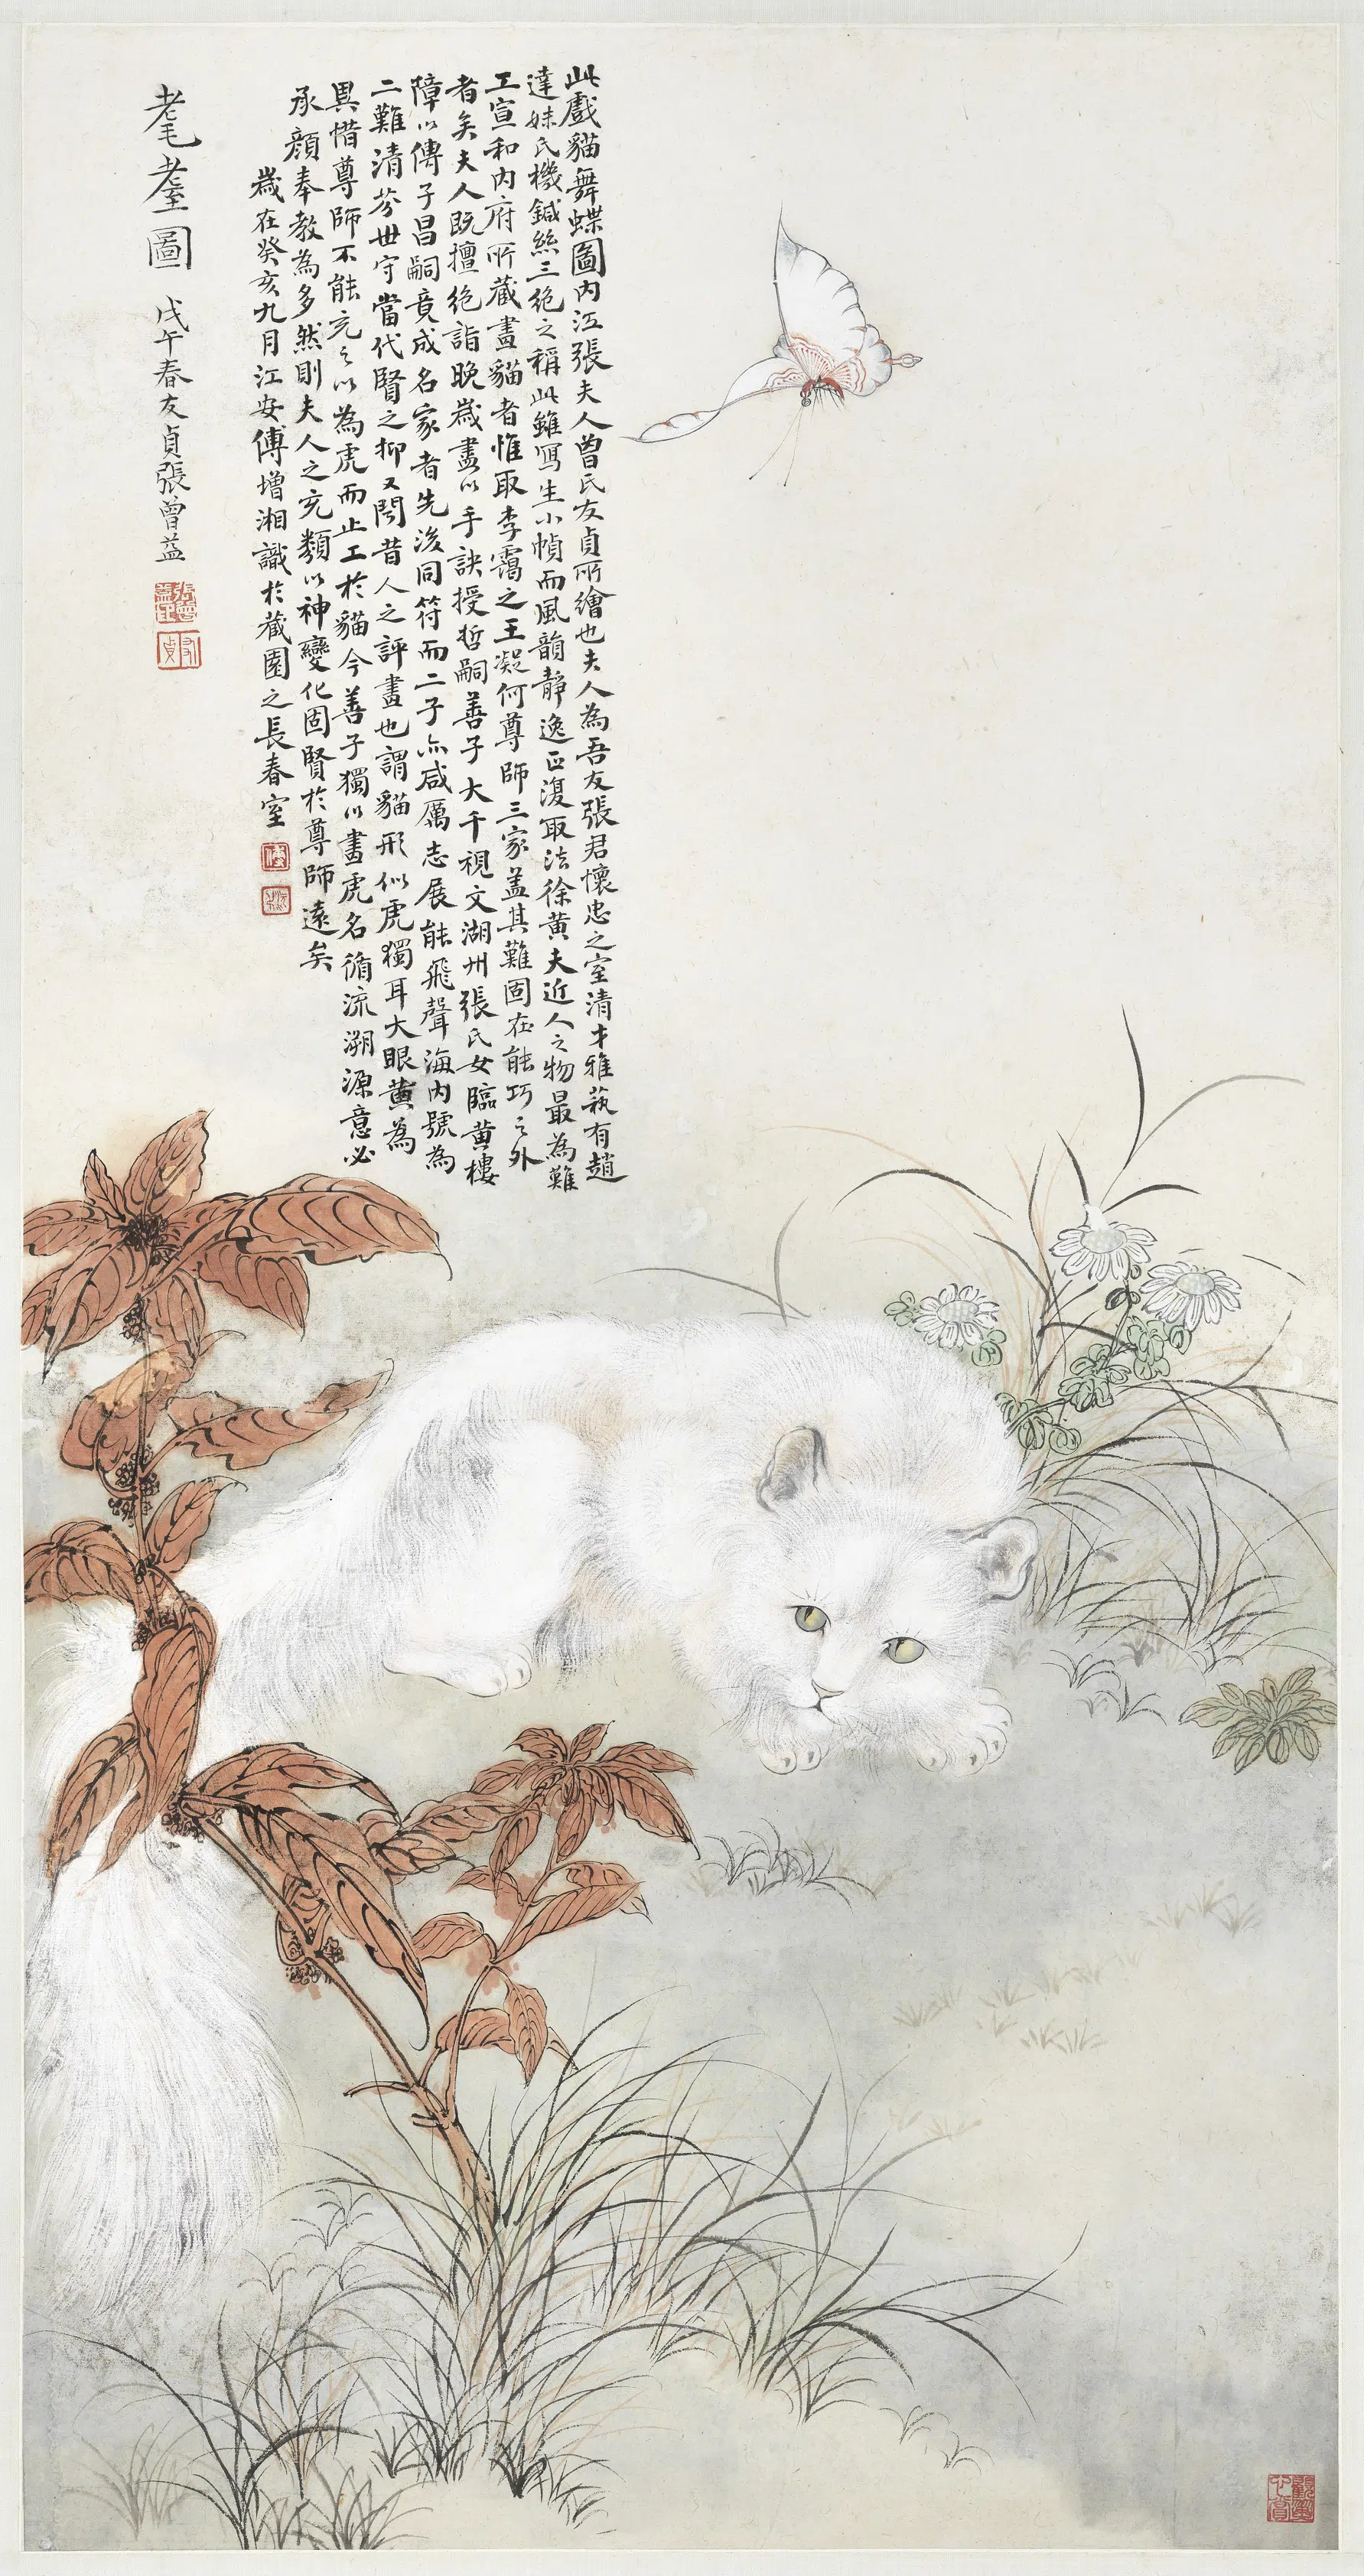 此戲貓舞蝶圖内江張夫人曾氏友貞所繪也夫人為吾友張君懷忠之室清才雅蓺有趙
達妹氏機鍼絲三絶之稱此雖寫生小幀而風韻靜逸正復取法徐黄夫近人之物最為難
工宣和内府所藏畫貓者惟取李靄之王凝何尊師三家蓋其難固在能巧之外
者矣夫人既擅絶詣晚嵗畫以手訣授哲嗣善子大千視文湖州張氏女臨黄樓
障以傳子昌嗣竟成名家者先後同符而二子亦咸厲志展能飛聲海内號為
二難清芬世守當代賢之抑又聞昔人之評畫也謂貓形似虎獨耳大眼黄為
異惜尊師不能充之以為虎而止工於貓今善子獨以畫虎名循流溯源意必
承顔奉教為多然則夫人之充類以神變化固賢於尊師遠矣
嵗在癸亥九月江安傅增湘識於藏園之長春室
耄耋圖 戊午春友貞張曾益
張曾益印
友貞